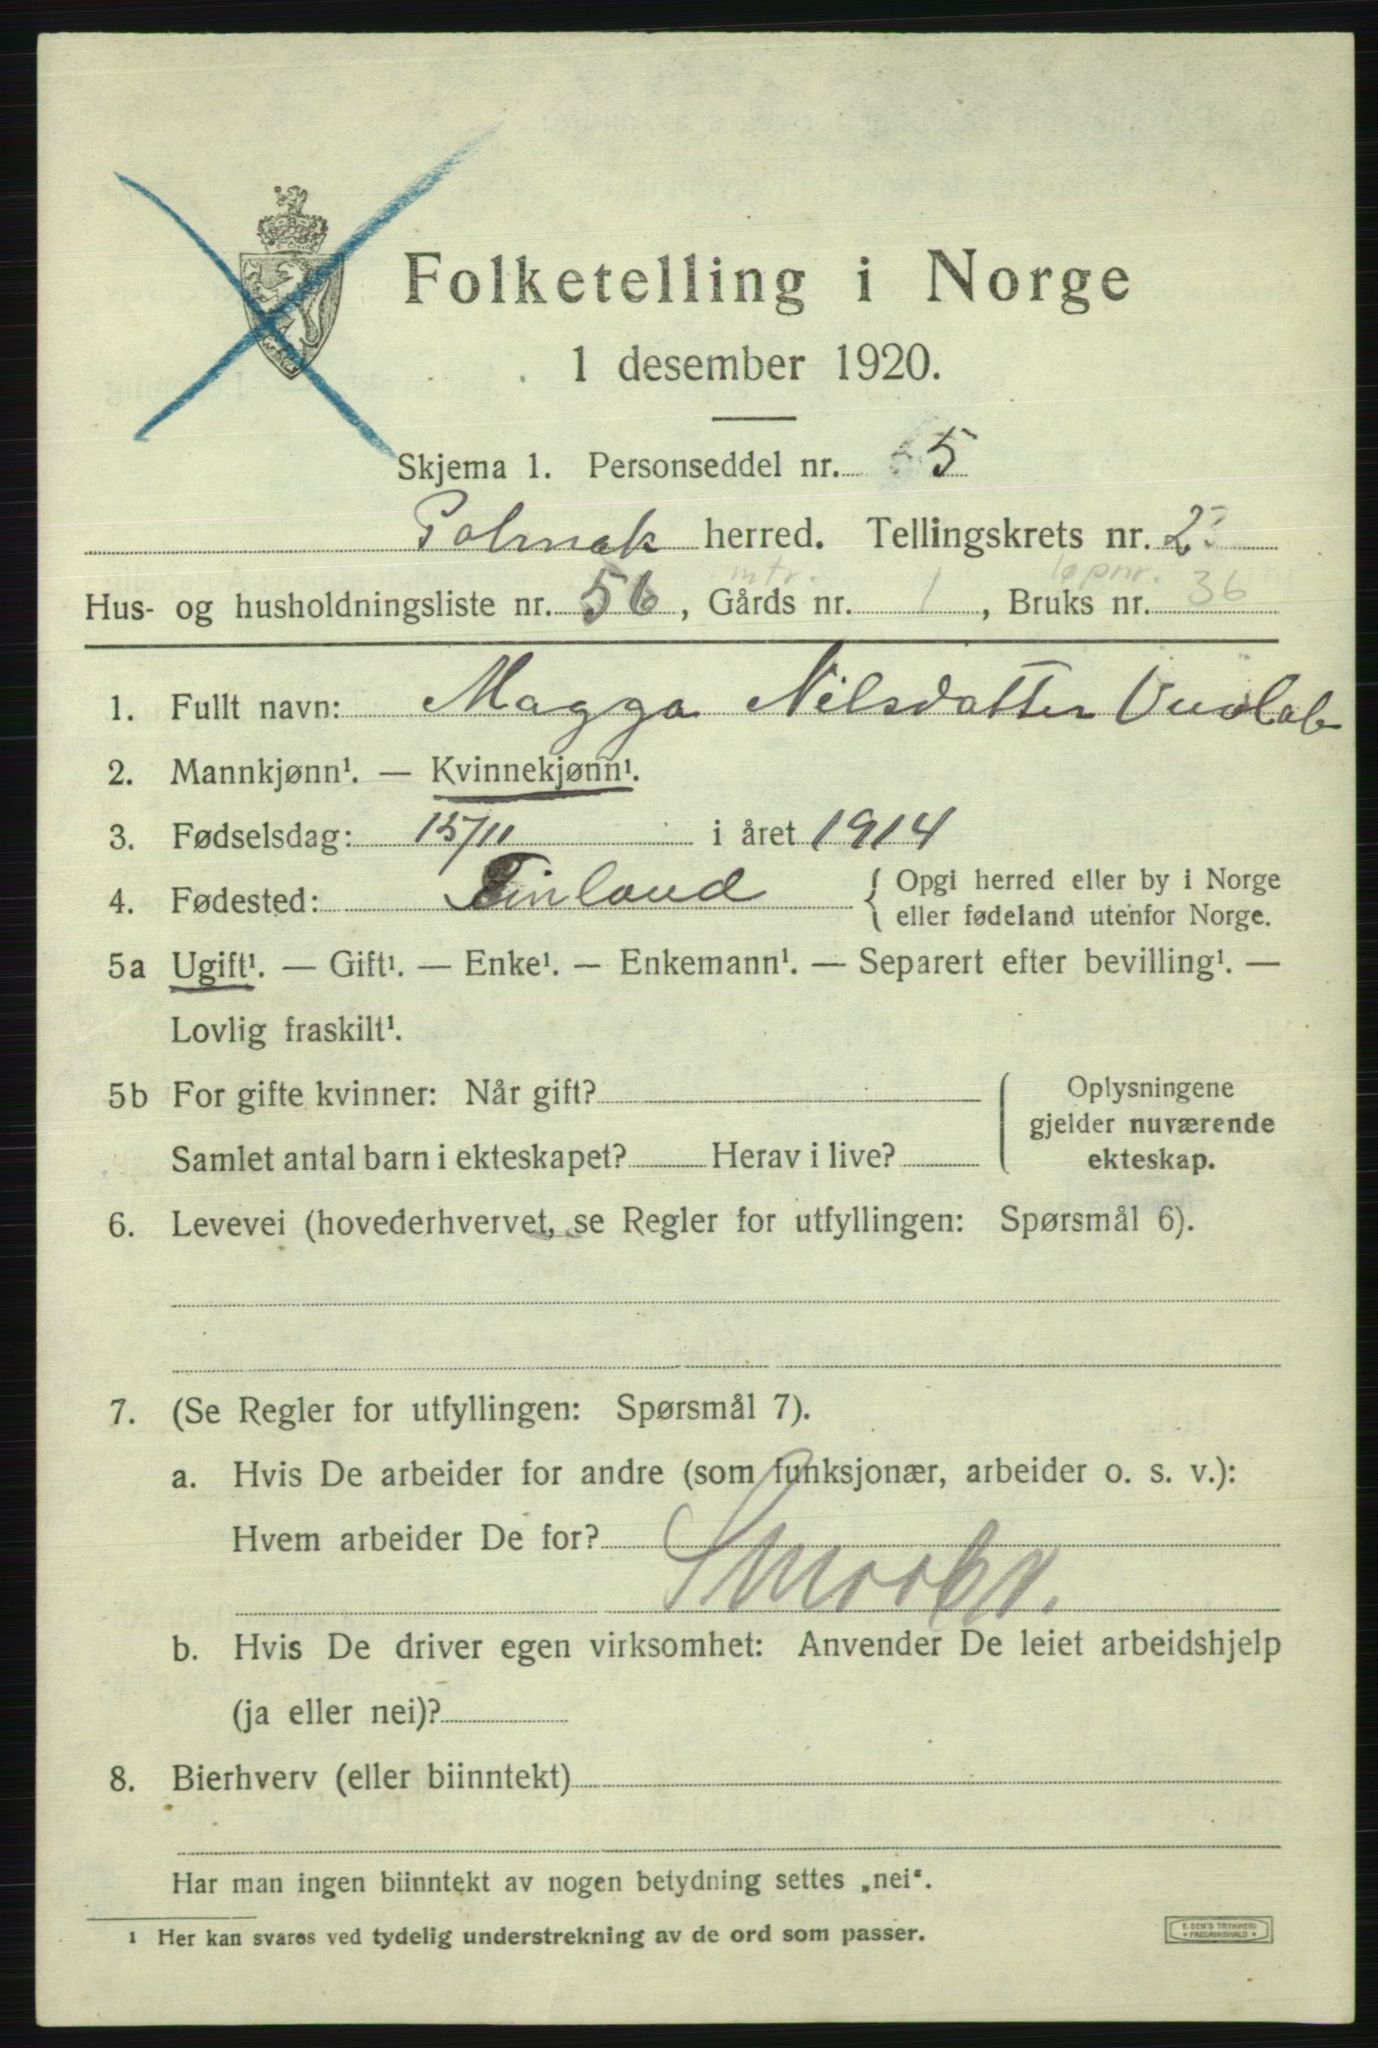 Folketelling i Norge
1 desember 1920.
Skjema 1. Personseddel nr. 5
Polmak herred. Tellingskrets nr. 2
mtr. løpnr.
Hus- og husholdningsliste nr. 56, Gårds nr. 1, Bruks nr. 36
1. Fullt navn: Magga Nilsdatter Vuolab
2. Mannkjønn¹. — Kvinnekjønn¹.
3. Fødselsdag: 15/11 i året 1914
4. Fødested: Finland { Opgi herred eller by i Norge
eller fødeland utenfor Norge.
5a Ugift¹. — Gift¹. — Enke¹. — Enkemann¹. — Separert efter bevilling¹. —
Lovlig fraskilt¹.
5b For gifte kvinner: Når gift? ( Oplysningene
gjelder nuværende
Samlet antal barn i ekteskapet? Herav i live? ekteskap.
6. Levevei (hovederhvervet, se Regler for utfyllingen: Spørsmål 6).
7. (Se Regler for utfyllingen: Spørsmål 7).
a. Hvis De arbeider for andre (som funksjonær, arbeider o. s. v.):
Hvem arbeider De for?
b. Hvis De driver egen virksomhet: Anvender De leiet arbeidshjelp
(ja eller nei)?
8. Bierhverv (eller biinntekt)
Har man ingen biinntekt av nogen betydning settes „nei“.
¹ Her kan svares ved tydelig understrekning av de ord som passer.
E. SEM'S TRYKKERI
* FREDRIKSHALD *